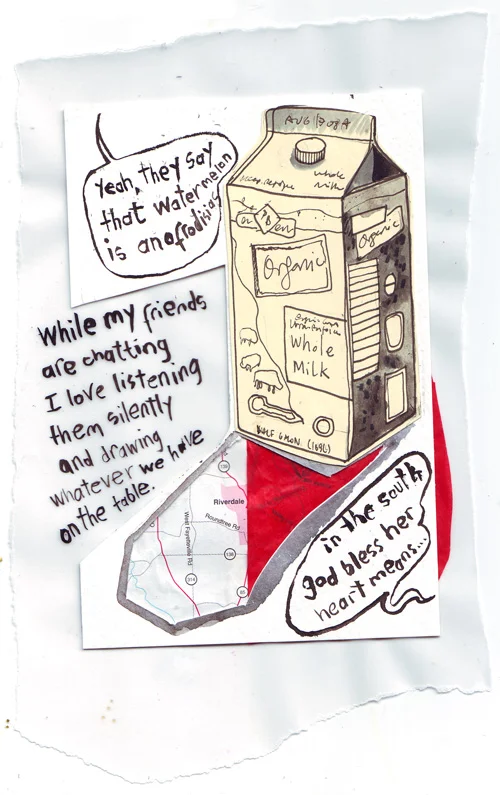 yeah, they say
that watermelon
is an afrodisias
AUG
whole
milk
Organic
Organic
Whole
Milk
HALF GALLON
While my friends
are chatting
I love listening
them silently
and drawing
whatever we have
on the table.
139
Riverdale
Roundtree Rd
West Fayetteville Rd
138
314
85
in the south
god bless her
heart means...